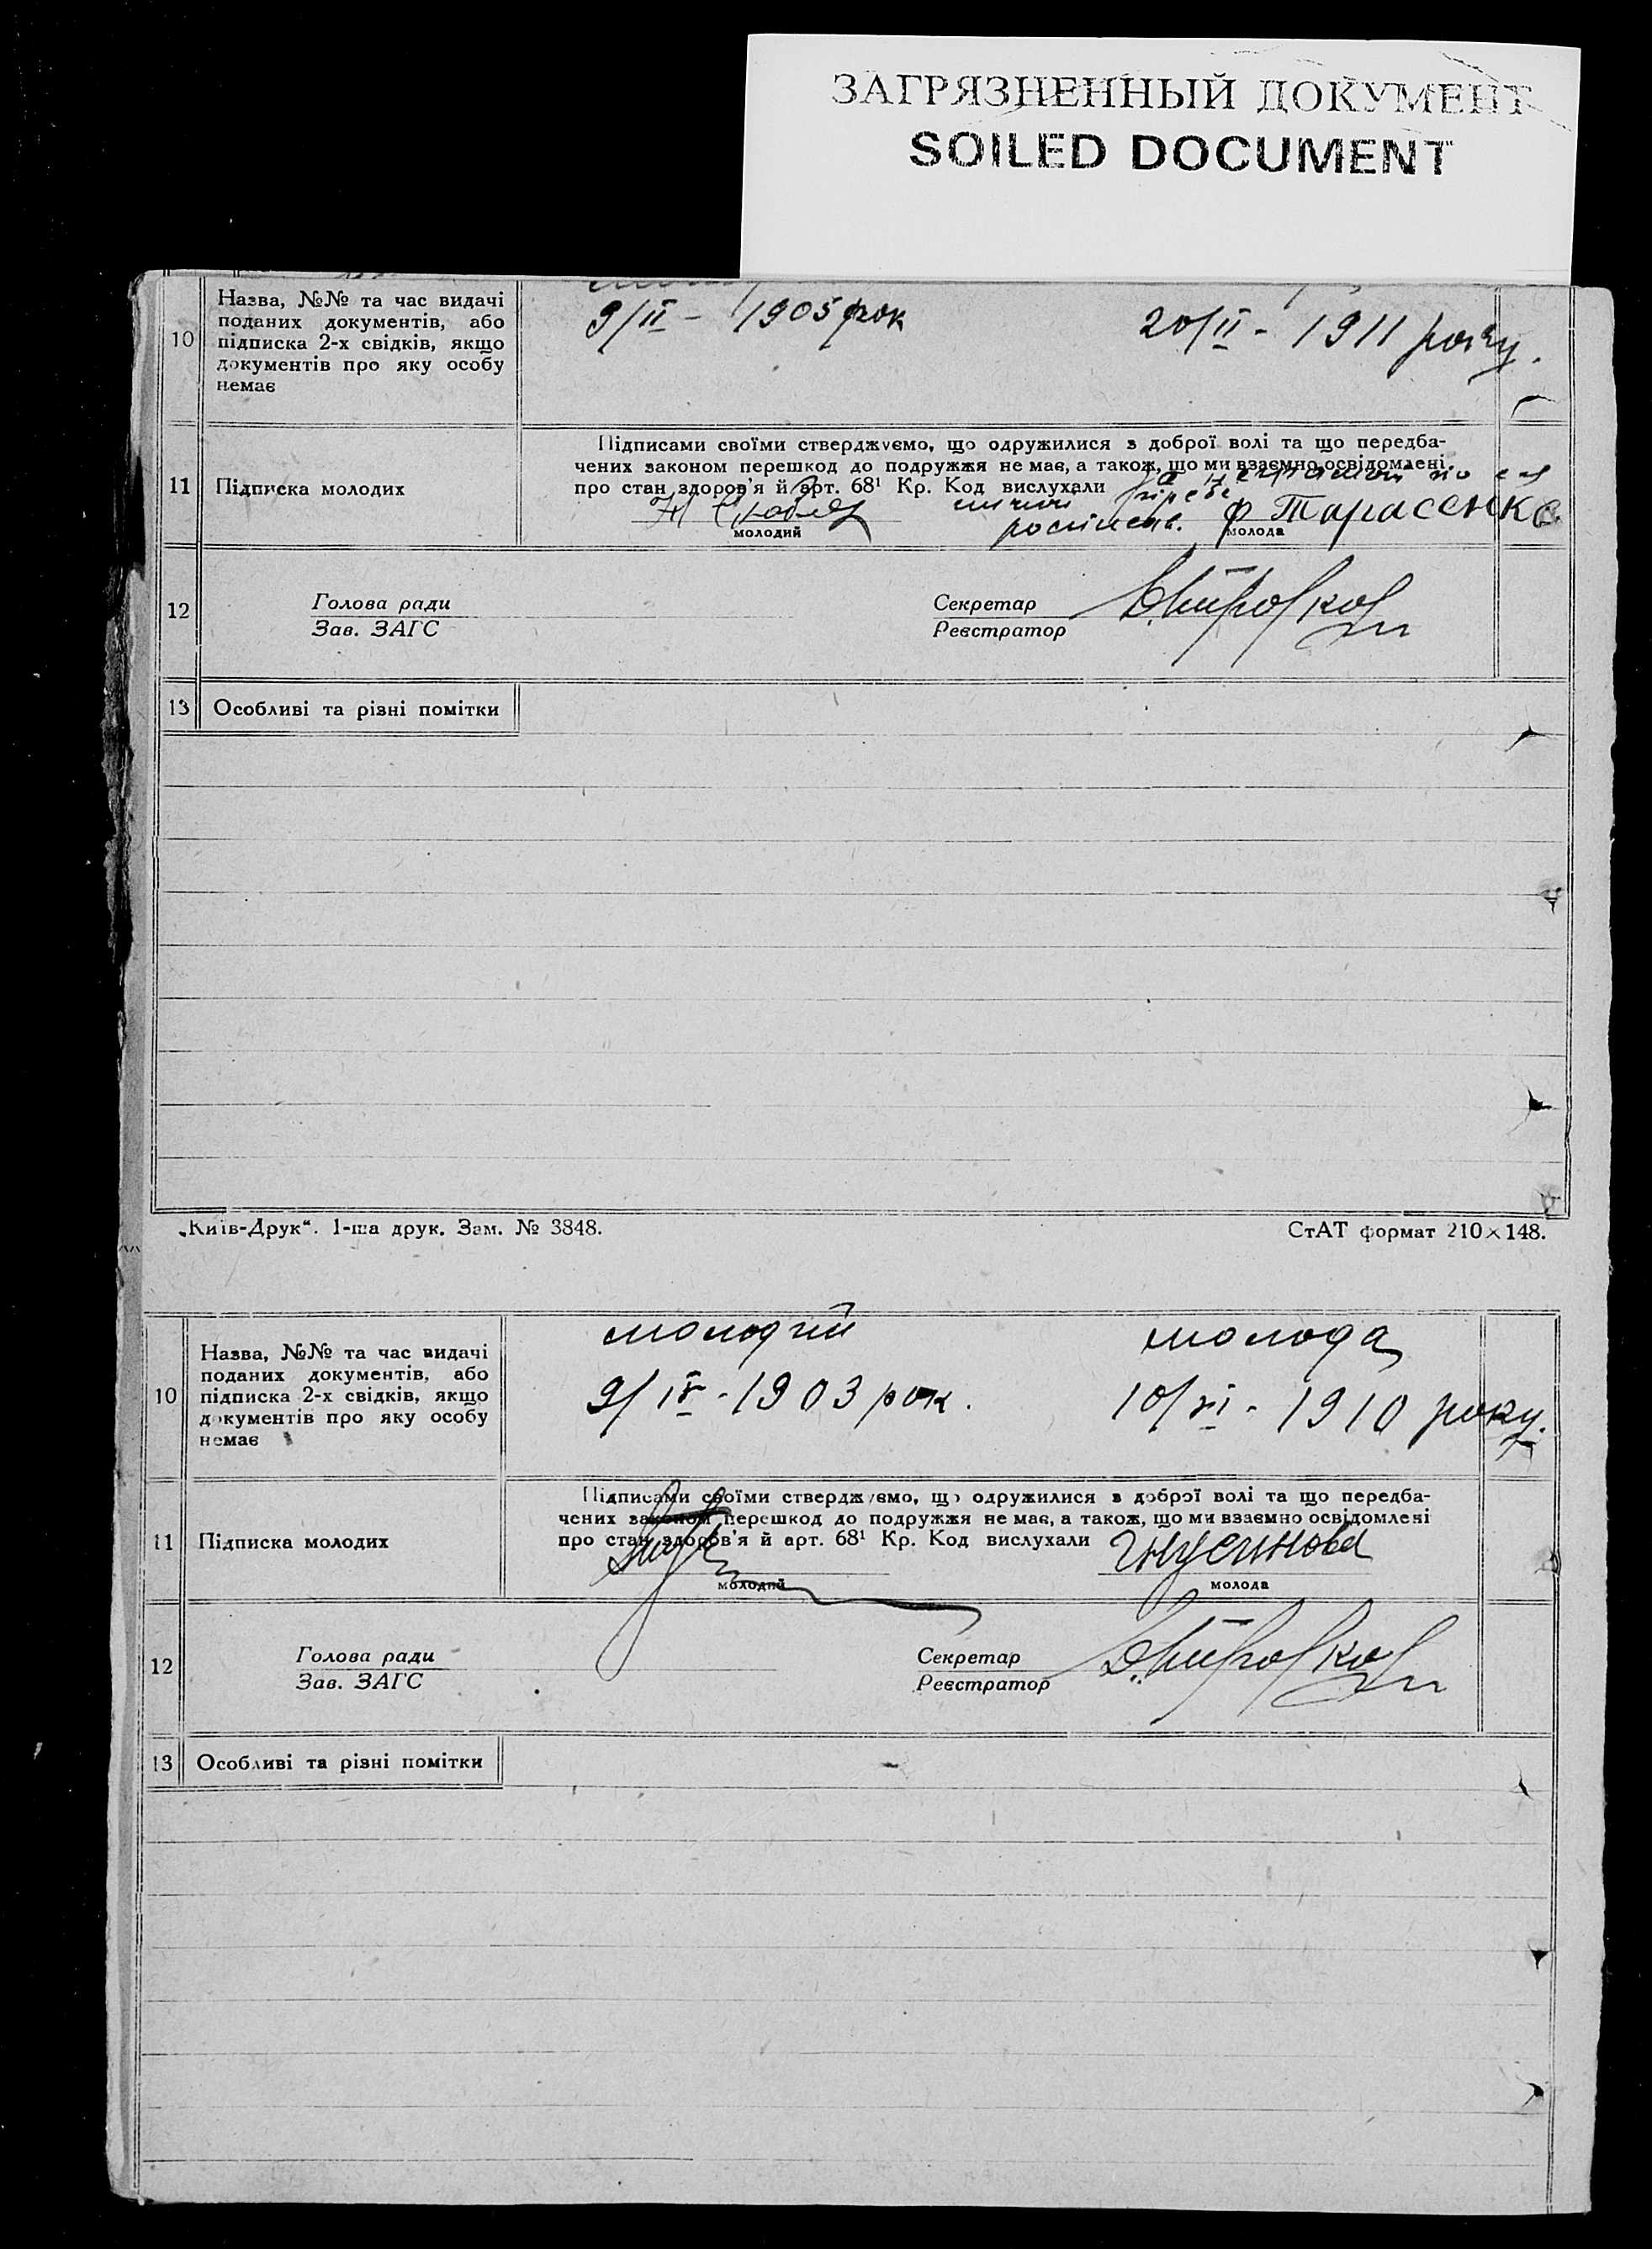 ЗАГРЯЗНЕННЫЙ ДОКУМЕНТ
SOILED DOCUMENT
10
Назва, №№ та час видачі
поданих документів, або
підписка 2-х свідків, якщо
документів про яку особу
немає
9/II - 1905 рок
20/II - 1911 року.
11
Підписка молодих
Підписами своїми стверджуємо, що одружилися з доброї волі та що передба-
чених законом перешкод до подружжя не має, а також, що ми взаємно освідомлені
про стан здоров'я й арт. 68¹ Кр. Код вислухали
За неграмот по
Ф Тарасенко
молодий
молода
12
Голова ради
Зав. ЗАГС
Секретар
Реєстратор
13
Особливі та різні помітки
„Київ-Друк“. 1-ша друк. Зам. № 3848.
СтАТ формат 210×148.
10
Назва, №№ та час видачі
поданих документів, або
підписка 2-х свідків, якщо
документів про яку особу
немає
молодий
молода
9/IV - 1903 рок.
10/VI - 1910 року.
11
Підписка молодих
Підписами своїми стверджуємо, що одружилися з доброї волі та що передба-
чених законом перешкод до подружжя не має, а також, що ми взаємно освідомлені
про стан здоров'я й арт. 68¹ Кр. Код вислухали
молодий
молода
12
Голова ради
Зав. ЗАГС
Секретар
Реєстратор
13
Особливі та різні помітки